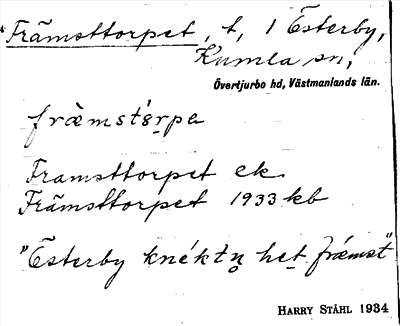 "Främsttorpet, t, 1 Esterby,
Kumla sn,
Övertjurbo hd, Västmanlands län.
fræ̀mstɔrpa
Framsttorpet ek
Främsttorpet 1933 kb
"Esterby knéktn het frǽmst"
HARRY STÅHL 1934